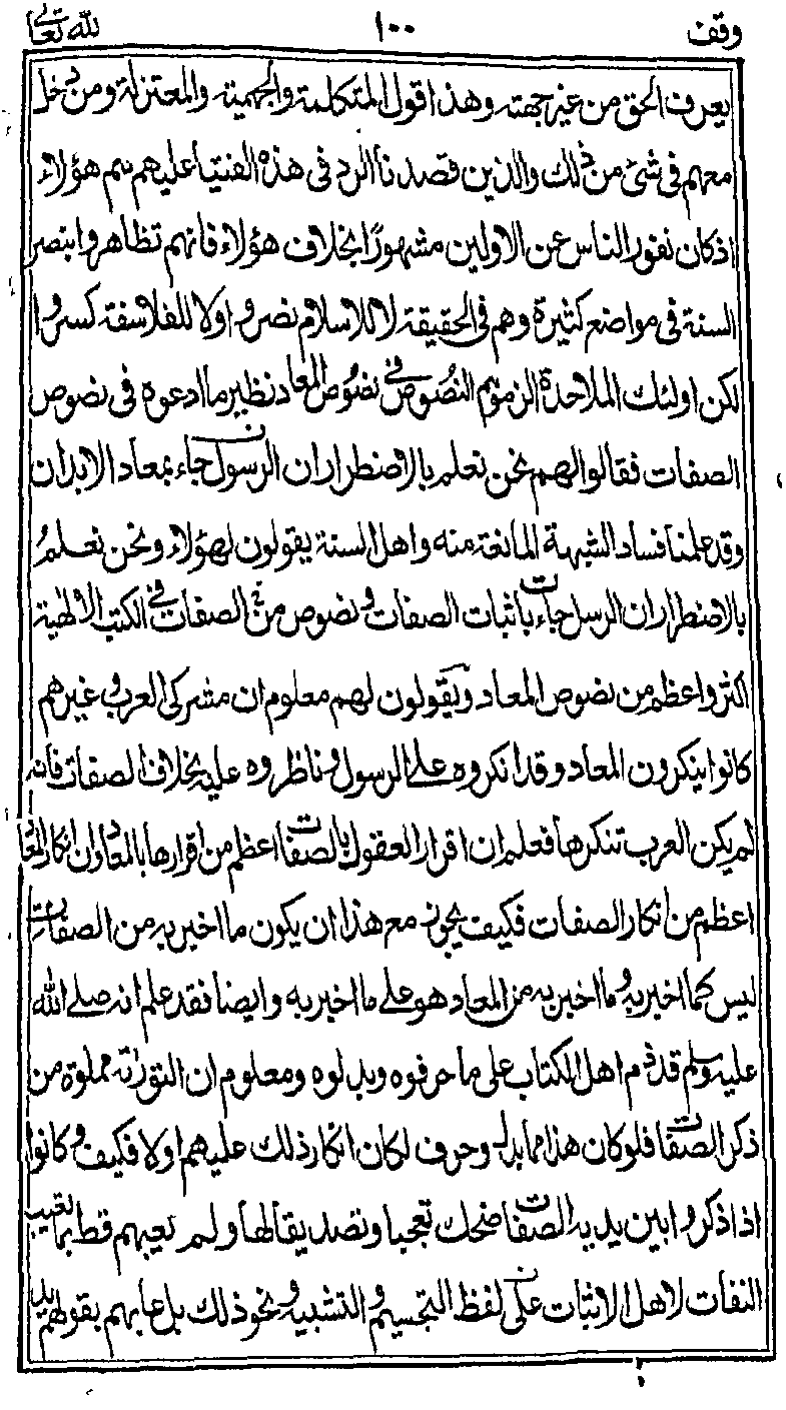 وقف ١٠٠ لله تعالى
يعرف الحق من غير جهته وهذا قول المتكلمة والجهمية والمعتزلة ومن دخل
معهم فى شئ من ذلك والذين قصدنا الرد فى هذه الفتيا عليهم هم هؤلاء
اذ كان نفور الناس عن الاولين مشهورًا بخلاف هؤلاء فانهم تظاهروا بنصر
السنة فى مواضع كثيرة وهم فى الحقيقة لا للاسلام نصروا ولا للفلاسفة كسروا
لكن اولئك الملاحدة الزموهم النصوص فى نصوص المعاد نظير ما ادعوه فى نصوص
الصفات فقالوا لهم نحن نعلم بالاضطرار ان الرسول جاء بمعاد الابدان
وقد علمنا فساد الشبهة المانعة منه واهل السنة يقولون لهؤلاء ونحن نعلمُ
بالاضطرار ان الرسل جاءت باثبات الصفات ونصوص من الصفات فى الكتب الالهية
اكثر واعظم من نصوص المعاد ويقولون لهم معلوم ان مشركى العرب وغيرهم
كانوا ينكرون المعاد وقد انكروه على الرسول وناظروه عليه بخلاف الصفات فانه
لم يكن العرب تنكرها فعلم ان اقرار العقول بالصفات اعظم من اقرارها بالمعاد وان انكار المعاد
اعظم من انكار الصفات فكيف يجوز مع هذا ان يكون ما اخبر به من الصفات
ليس كما اخبر به وما اخبر به من المعاد هو على ما اخبر به وايضا فقد علم انه صلى الله
عليه وسلم قد ذم اهل الكتاب على ما حرفوه وبدلوه ومعلوم ان التوراة مملوة من
ذكر الصفات فلو كان هذا مما بدل وحرف لكان انكار ذلك عليهم اولا فكيف وكانوا
اذا ذكروا بين يديه الصفات ضحك تعجبا وتصديقا لها ولم يعبهم قط بما تعيب
النفات لاهل الاثبات على لفظ التجسيم والتشبيه ونحو ذلك بل عابهم بقولهم يد